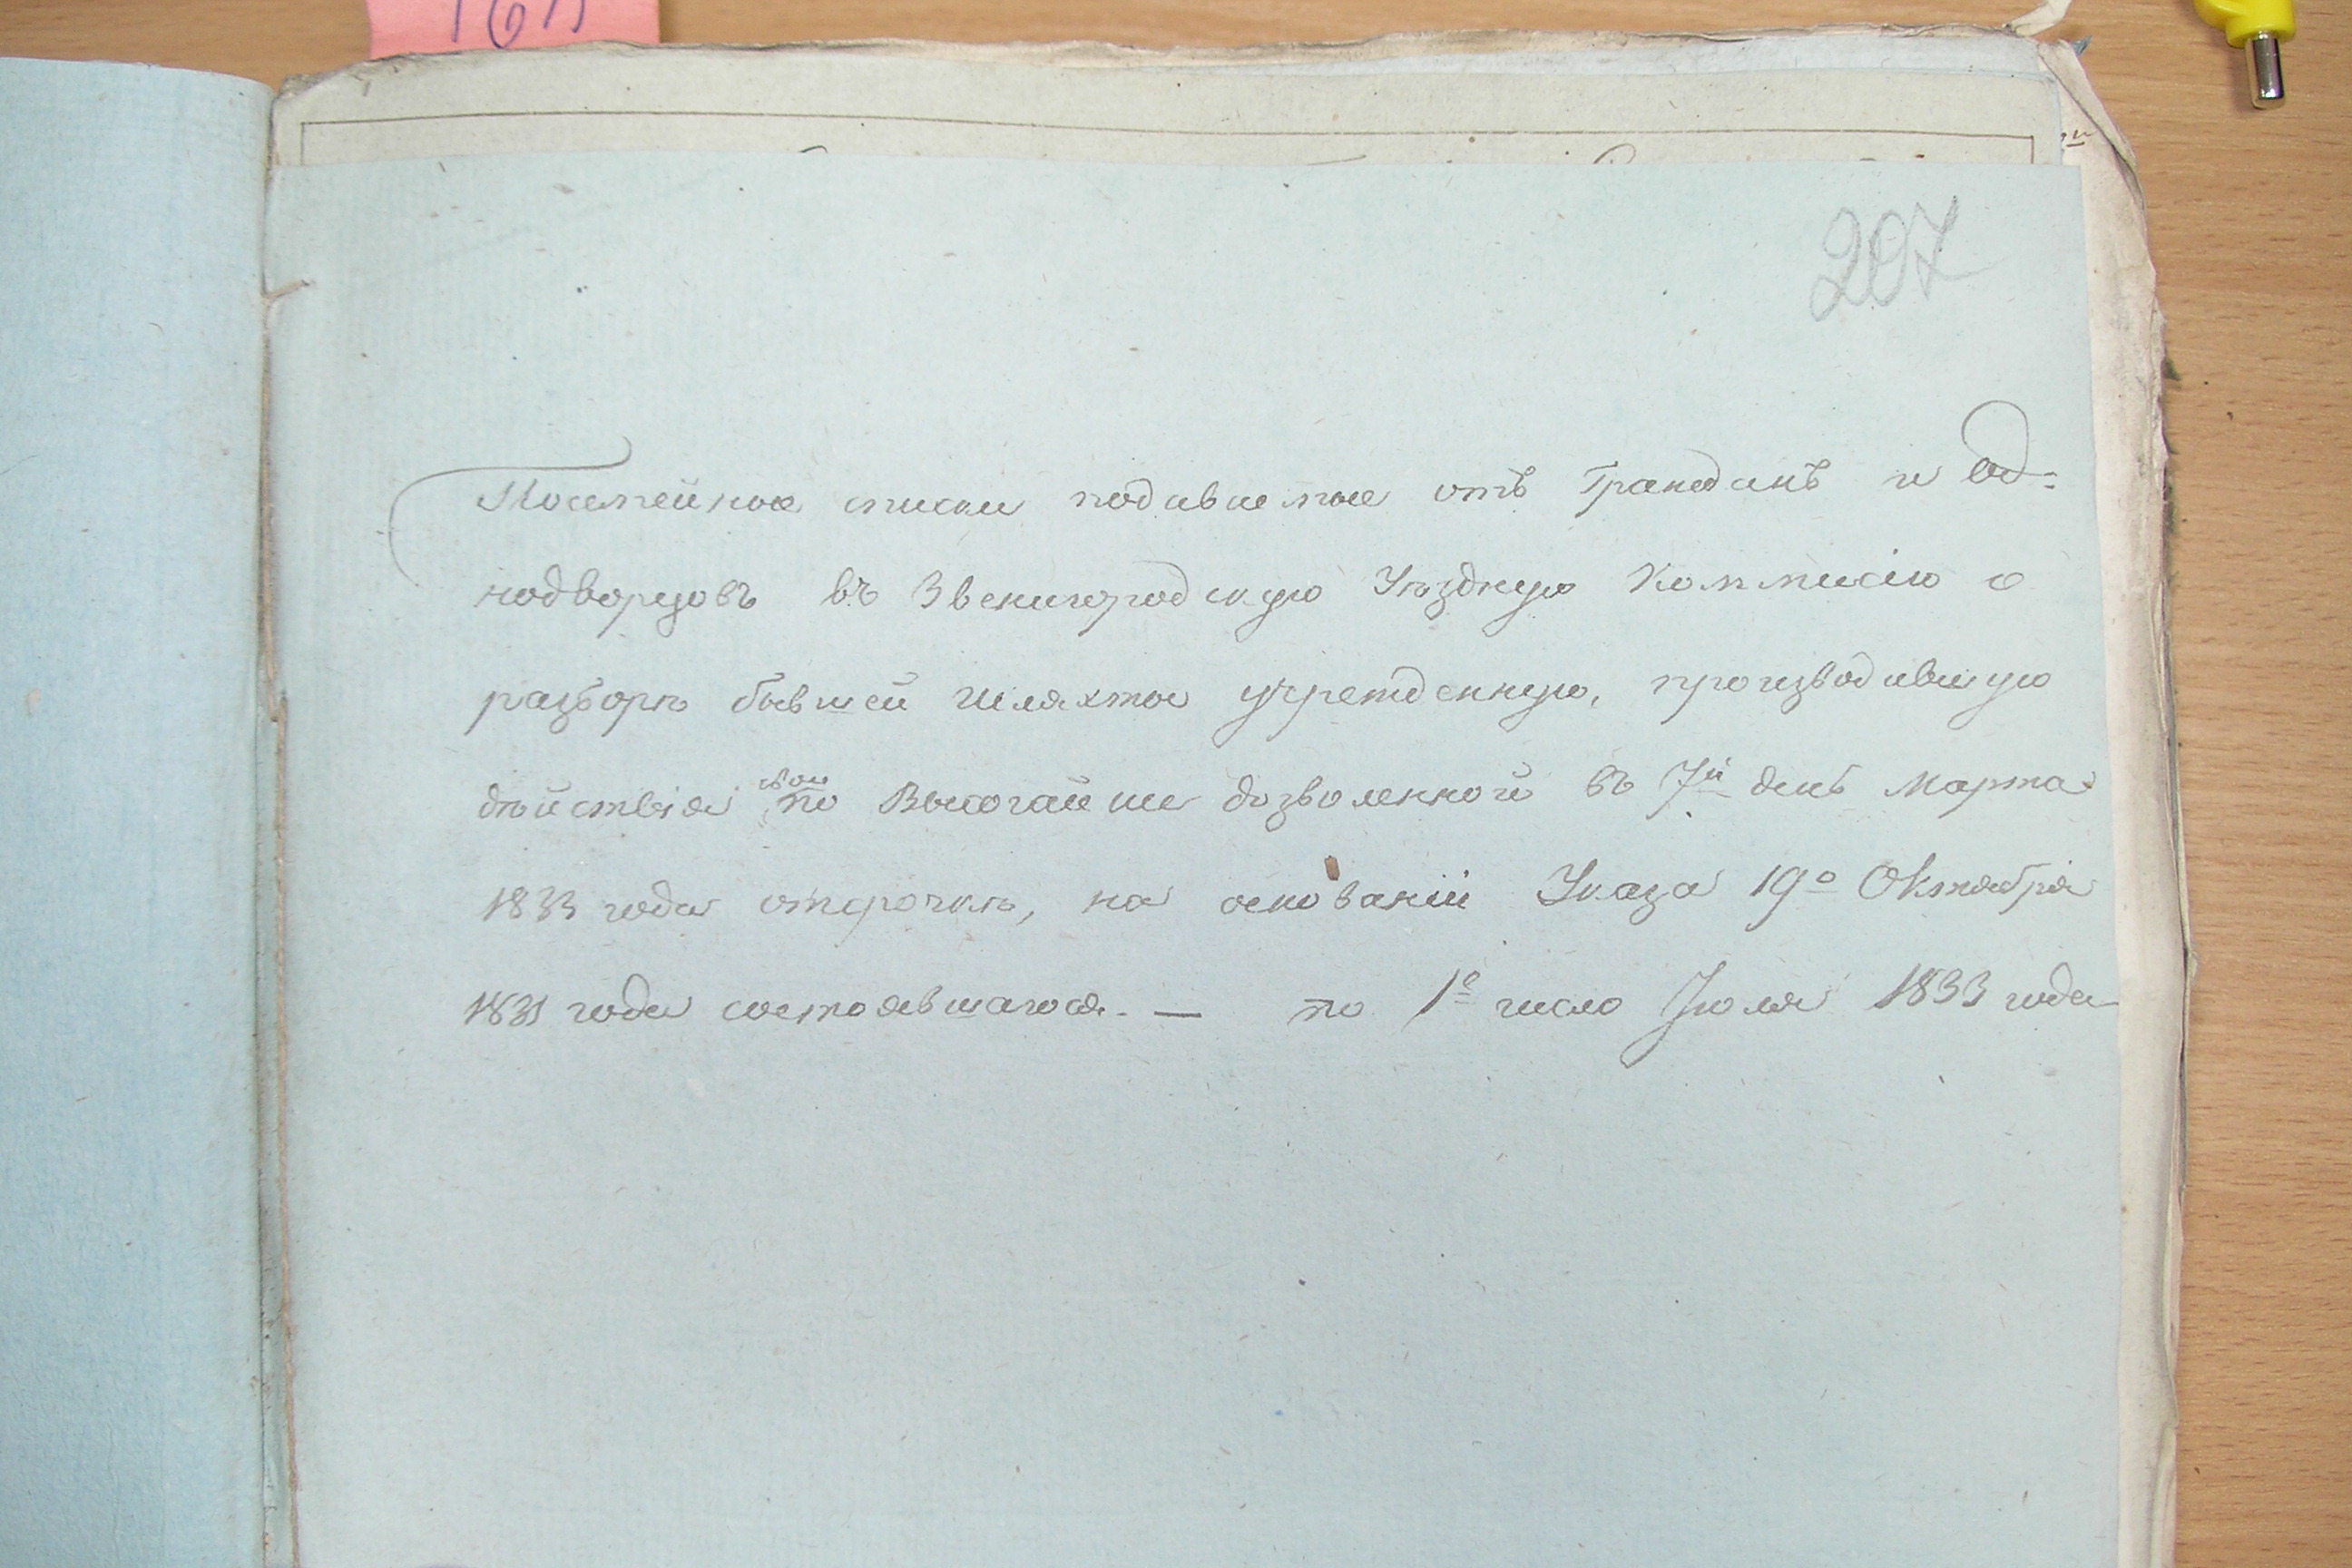 207
Посемейные списки подаваемые отъ Гражданъ и од=
нодворцовъ въ Звенигородскую Уѣздную Коммисію о
разборѣ бывшей шляхты учрежденную, производившую
дѣйствія свои по Высочайше дозволенной въ 7й день Марта
1833 года отсрочкѣ, на основаніи Указа 19о Октября
1831 года состоявшагося. — по 1е число Іюля 1833 года